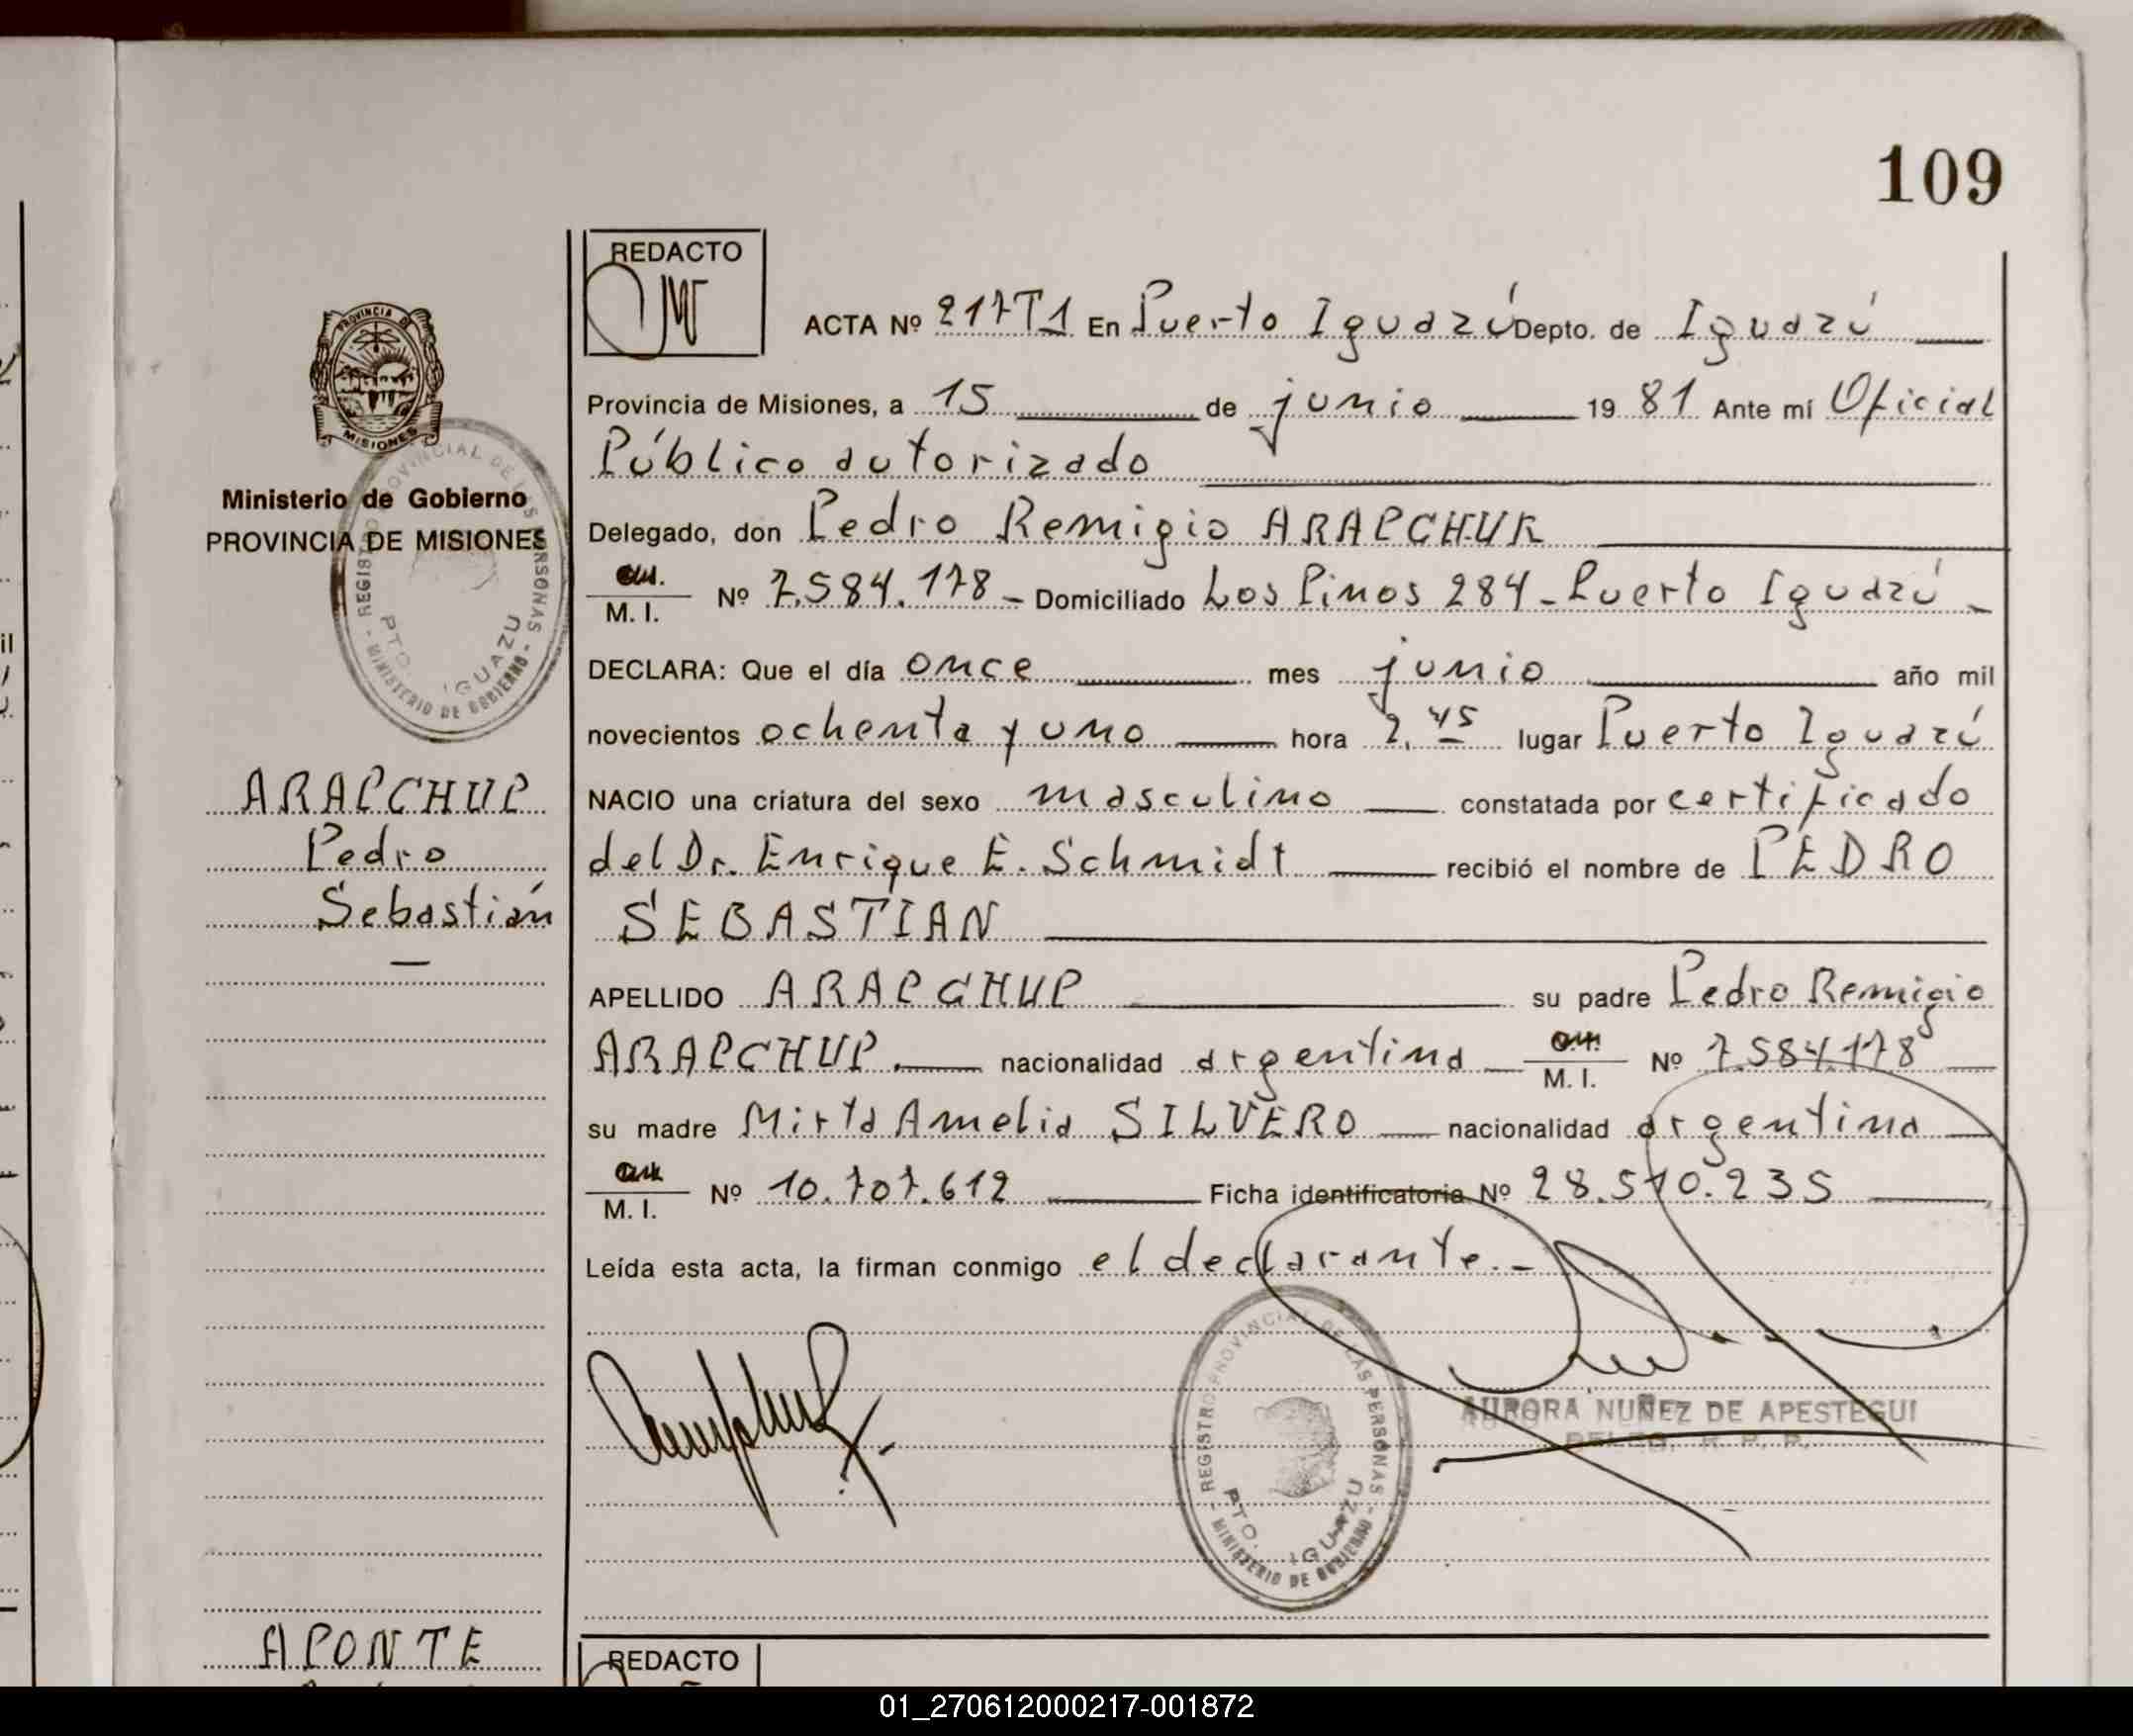 109
REDACTO
ACTA Nº 217T1 En Puerto Iguazú Depto. de Iguazú
Provincia de Misiones, a 15 de junio 1981 Ante mí Oficial
Público autorizado
Delegado, don Pedro Remigio ARAPCHUK
M. I. Nº 7.584.178 - Domiciliado Los Pinos 284 - Puerto Iguazú -
DECLARA: Que el día once mes junio año mil
novecientos ochenta y uno hora 2,45 lugar Puerto Iguazú
NACIO una criatura del sexo masculino constatada por certificado
del Dr. Enrique E. Schmidt recibió el nombre de PEDRO
SEBASTIAN
APELLIDO ARAPCHUP su padre Pedro Remigio
ARAPCHUP. nacionalidad argentina M. I. Nº 7.584.178
su madre Mirta Amelia SILVERO nacionalidad argentina
M. I. Nº 10.707.612 Ficha identificatoria Nº 28.510.235
Leída esta acta, la firman conmigo el declarante.-
AURORA NUÑEZ DE APESTEGUI
DELEG. R. P. P.
REGISTRO PROVINCIAL DE LAS PERSONAS
PTO. IGUAZU
- MINISTERIO DE GOBIERNO -
PROVINCIA DE
MISIONES
Ministerio de Gobierno
PROVINCIA DE MISIONES
REGISTRO PROVINCIAL DE LAS PERSONAS
PTO. IGUAZU
- MINISTERIO DE GOBIERNO -
ARAPCHUP
Pedro
Sebastián
APONTE
REDACTO
01_270612000217-001872